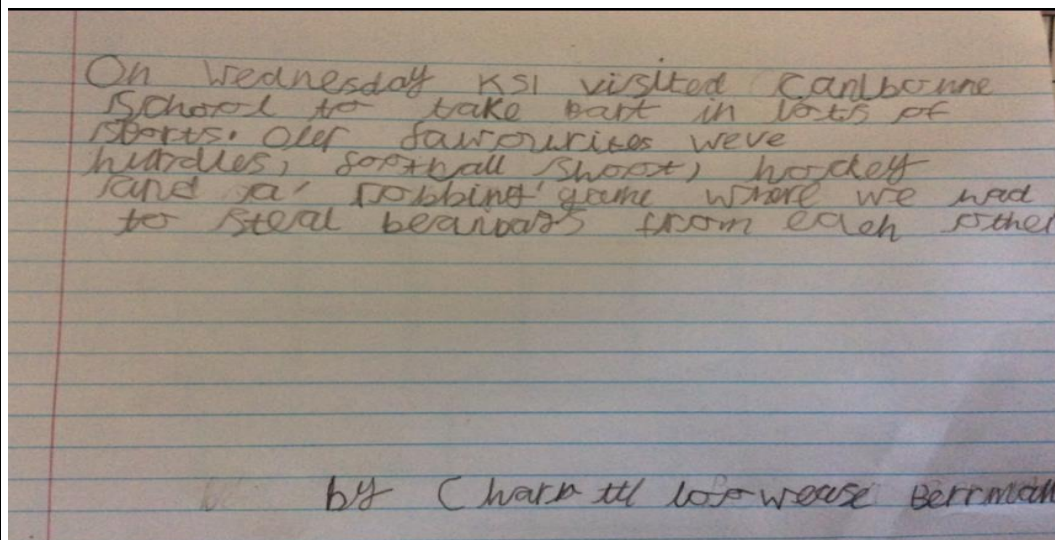 On Wednesday KS1 visited Canlborne
School to take part in lots of
sports. Our favourites weve
hurdles, football shoot, hockey
and a 'robbing' game where we had
to steal beanbags from each other
by Berrman